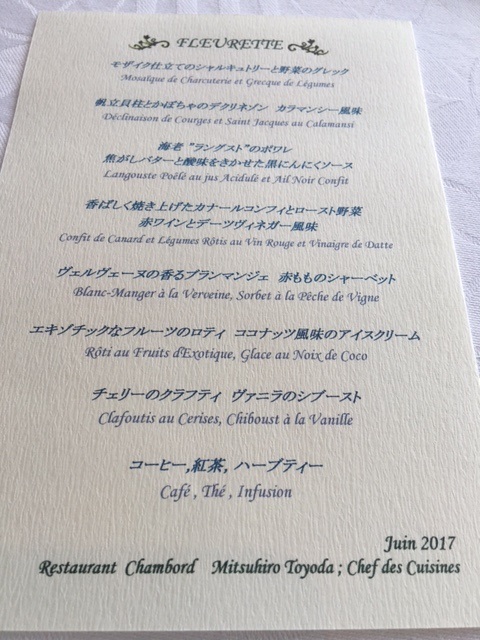 FLEURETTE
モザイク仕立てのシャルキュトリーと野菜のグレック
Mosaïque de Charcuterie et Grecque de Légumes
帆立貝柱とかぼちゃのデクリネゾン カラマンシー風味
Déclinaison de Courges et Saint Jacques au Calamansi
海老 "ラングスト"のポワレ
焦がしバターと酸味をきかせた黒にんにくソース
Langouste Poêlé au jus Acidulé et Ail Noir Confit
香ばしく焼き上げたカナールコンフィとロースト野菜
赤ワインとデーツヴィネガー風味
Confit de Canard et Légumes Rôtis au Vin Rouge et Vinaigre de Datte
ヴェルヴェーヌの香るブランマンジェ 赤もものシャーベット
Blanc-Manger à la Verveine, Sorbet à la Pêche de Vigne
エキゾチックなフルーツのロティ ココナッツ風味のアイスクリーム
Rôti au Fruits d'Exotique, Glace au Noix de Coco
チェリーのクラフティ ヴァニラのシブースト
Clafoutis au Cerises, Chiboust à la Vanille
コーヒー,紅茶, ハーブティー
Café , Thé , Infusion
Juin 2017
Restaurant Chambord Mitsuhiro Toyoda ; Chef des Cuisines